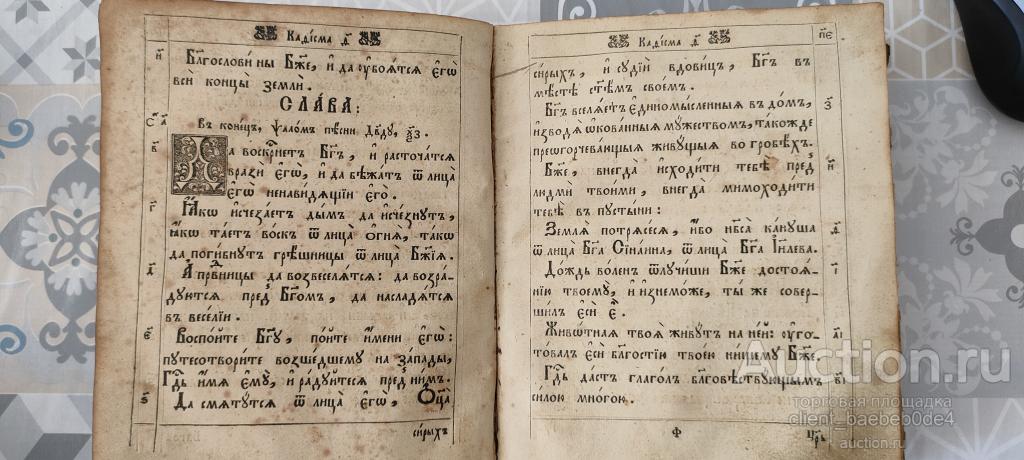 Каѳі́сма д҃
и҃
Бл҃гослови́ ны Бж҃е, и҆ да ᲂу҆боѧ́тсѧ є҆гѡ̀
всѝ концы̀ землѝ.
СЛА́ВА:
Въ коне́цъ, ѱало́мъ пѣ́сни Дв҃ду, ѯ҃з.
в҃
Да воскрⷭ҇нетъ Бг҃ъ, и҆ расточа́тсѧ
вразѝ є҆гѡ̀, и҆ да бѣжа́тъ ѿ лица̀
є҆гѡ̀ ненави́дѧщїи є҆го̀.
г҃
Ꙗ҆́кѡ и҆счеза́етъ ды́мъ да и҆сче́знутъ,
ꙗ҆́кѡ та́етъ во́скъ ѿ лица̀ ѻ҆гнѧ̀, та́кѡ
да поги́бнутъ грѣ́шницы ѿ лица̀ Бж҃їѧ.
д҃
А҆ првⷣницы да возвеселѧ́тсѧ: да возра́-
дуютсѧ пред̾ Бг҃омъ, да насладѧ́тсѧ
въ весе́лїи.
є҃
Воспо́йте Бг҃у, по́йте и҆́мени є҆гѡ̀:
путесотвори́те возше́дшему на за́пады,
Гдⷭ҇ь и҆́мѧ є҆мꙋ̀, и҆ ра́дуйтесѧ пред̾ ни́мъ.
ѕ҃
Да смѧту́тсѧ ѿ лица̀ є҆гѡ̀, Ѻ҆ц҃а̀
си́рыхъ
Каѳі́сма д҃
п҃є
си́рыхъ, и҆ судїѝ вдови́цъ, Бг҃ъ въ
мѣ́стѣ ст҃ѣ́мъ свое́мъ.
з҃
Бг҃ъ вселѧ́етъ є҆диномы́сленныѧ въ до́мъ,
и҆зводѧ̀ ѡ҆кова́нныѧ му́жествомъ, та́кожде
преѡгорчева́ющыѧ живу́щыѧ во гробѣ́хъ.
и҃
Бж҃е, внегда̀ и҆сходи́ти тебѣ̀ пред̾
людмѝ твои́ми, внегда̀ мимоходи́ти
тебѣ̀ въ пусты́ни:
ѳ҃
Землѧ̀ потрѧсе́сѧ, и҆́бо нб҃са̀ ка́нуша
ѿ лица̀ Бг҃а Сїна́ина, ѿ лица̀ Бг҃а І҆и҃лева.
і҃
До́ждь во́ленъ ѿлучи́ши Бж҃е достоѧ́-
нїю твоему̀, и҆ и҆знемо́же, ты́ же совер-
ши́лъ є҆сѝ є҆̀.
а҃і
Живѡ́тнаѧ твоѧ̀ живу́тъ на не́й: ᲂу҆гo-
то́валъ є҆сѝ бл҃гостїю твоє́ю ни́щему Бж҃е.
в҃і
Гдⷭ҇ь да́стъ глаго́лъ бл҃говѣству́ющымъ
си́лою мно́гою.
Ф
Цр҃ь
Auction.ru
торговая площадка
client_baebeb0de4
auction.ru